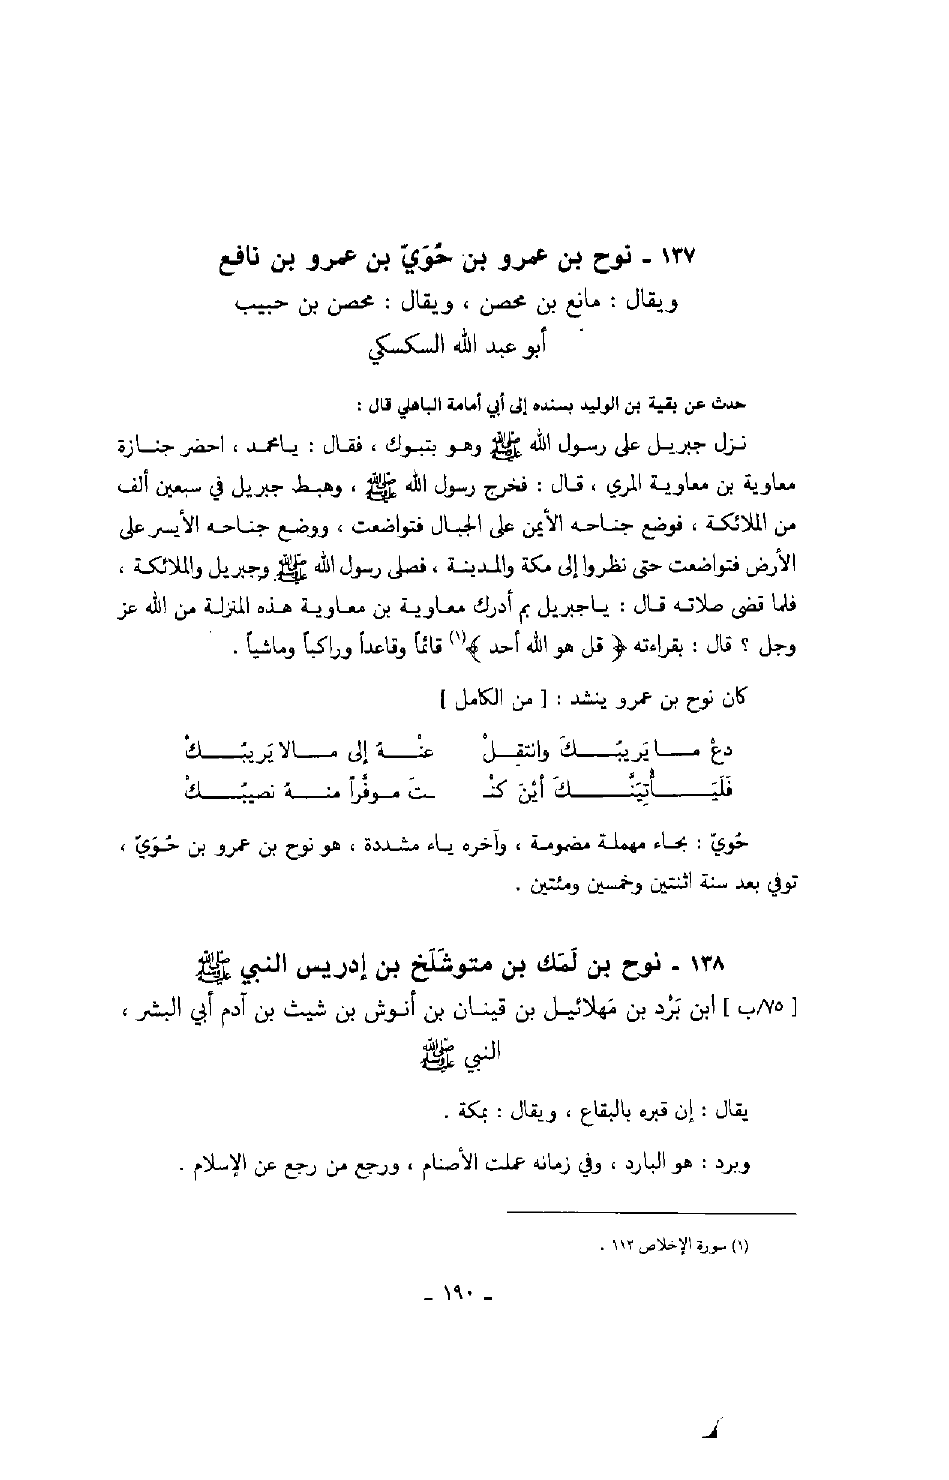 ١٣٧ - نوح بن عمرو بن حُوَيّ بن عمرو بن نافع
ويقال : مانع بن محصن ، ويقال : محصن بن حبيب
أبو عبد الله السكسكي
حدث عن بقية بن الوليد بسنده إلى أبي أمامة الباهلي قال :
نزل جبريل على رسول الله ﷺ وهو بتبوك ، فقال : يامحمد ، احضر جنازة
معاوية بن معاوية المري ، قال : فخرج رسول الله ﷺ ، وهبط جبريل في سبعين ألف
من الملائكة ، فوضع جناحه الأيمن على الجبال فتواضعت ، ووضع جناحه الأيسر على
الأرض فتواضعت حتى نظروا إلى مكة والمدينة ، فصلى رسول الله ﷺ وجبريل والملائكة ،
فلما قضى صلاته قال : ياجبريل بم أدرك معاوية بن معاوية هذه المنزلة من الله عز
وجل ؟ قال : بقراءته ﴿ قل هو الله أحد ﴾(١) قائماً وقاعداً وراكباً وماشياً .
كان نوح بن عمرو ينشد : [ من الكامل ]
دعْ مـا يَريبُـكَ وانتقـلْ عنـهُ إلى مـالا يَريبُـكْ
فَلَيَـأتِيَنَّـكَ أيْنَ كنْـ ـتَ مـوفَّراً منـهُ نصيبُـكْ
حُويّ : بحاء مهملة مضمومة ، وآخره ياء مشددة ، هو نوح بن عمرو بن حُوَيّ ،
توفي بعد سنة اثنتين وخمسين ومئتين .
١٣٨ - نوح بن لَمَك بن متوشَلَخ بن إدريس النبي ﷺ
[ ٧٥/ب ] ابن يَرْد بن مَهلائيل بن قينان بن أنوش بن شيث بن آدم أبي البشر ،
النبي ﷺ
يقال : إن قبره بالبقاع ، ويقال : بمكة .
ويرد : هو اليارد ، وفي زمانه عملت الأصنام ، ورجع من رجع عن الإسلام .
(١) سورة الإخلاص ١١٢ .
- ١٩٠ -